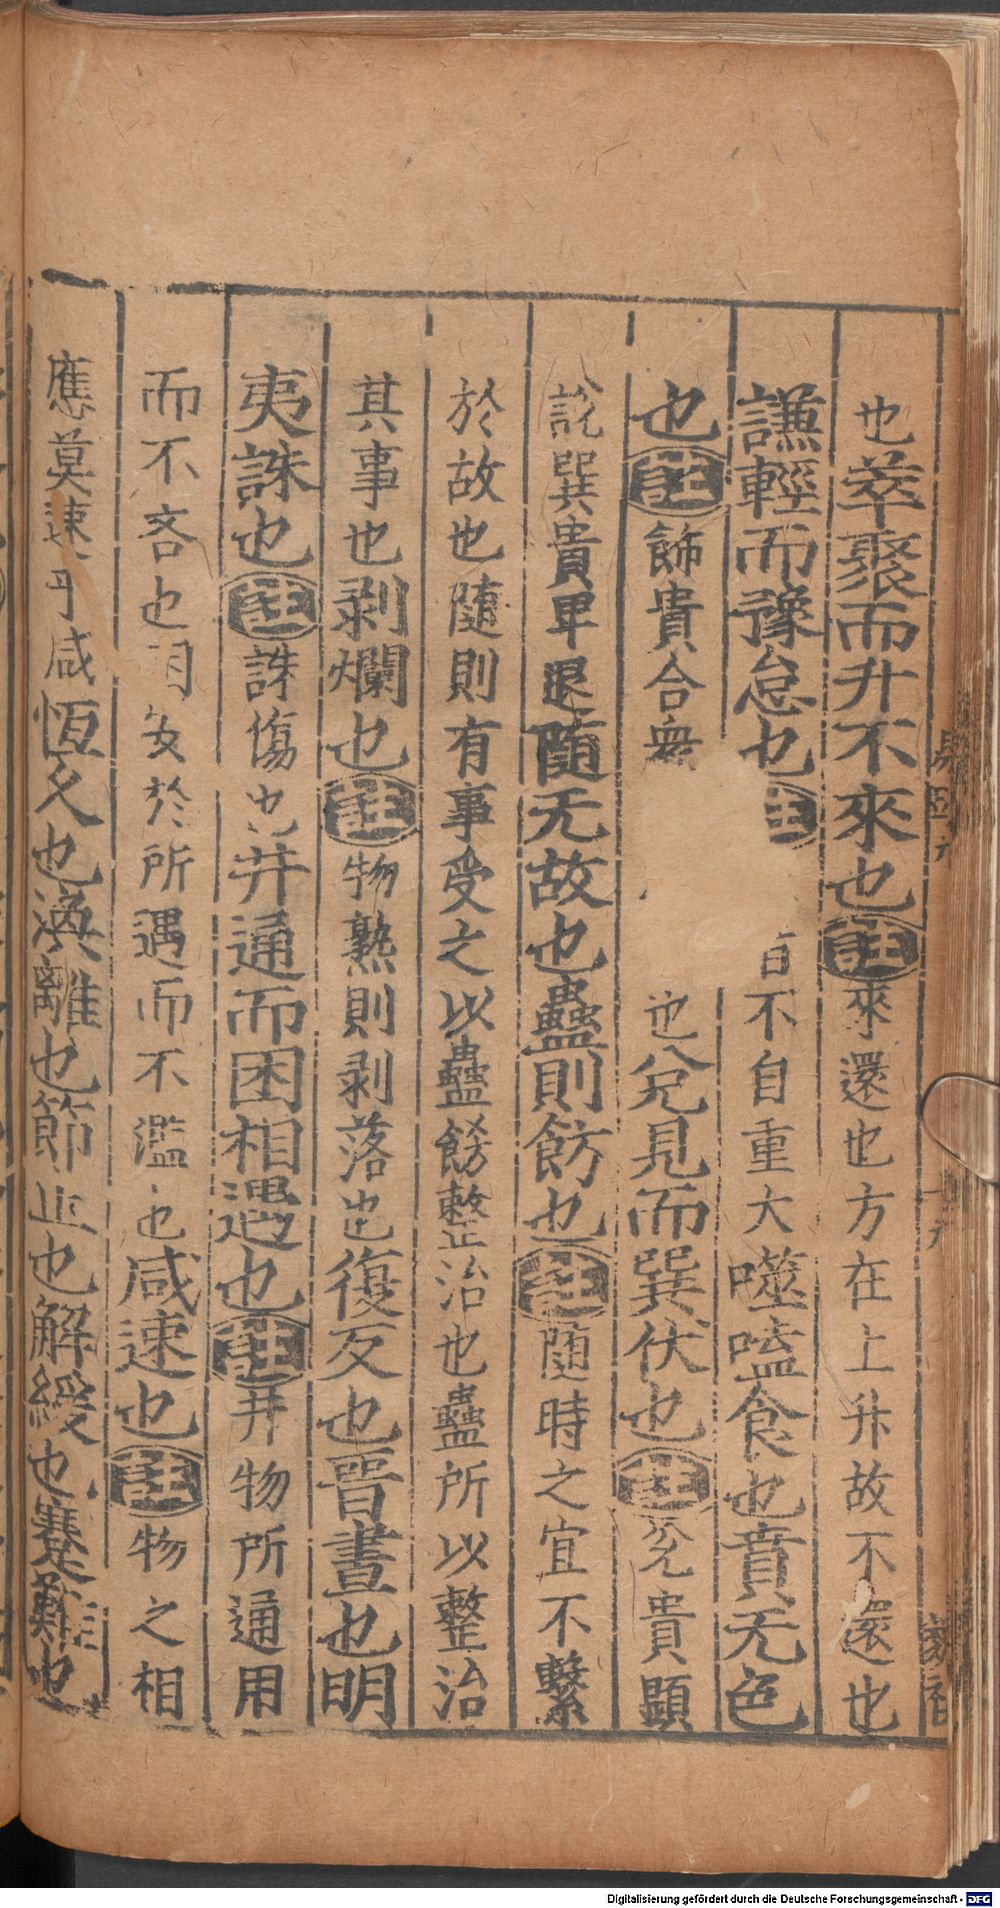 也萃聚而升不來也註來還也方在上升故不還也
謙輕而豫怠也註不自重大噬嗑食也賁无色
也註飾貴合衆也兌見而巽伏也註兌貴顯
說巽貴卑退隨无故也蠱則飭也註隨時之宜不繫
於故也隨則有事受之以蠱飭整治也蠱所以整治
其事也剥爛也註物熟則剥落也復反也晋晝也明
夷誅也註誅傷也井通而困相遇也註井物所通用
而不吝也困安於所遇而不濫也咸速也註物之相
應莫速乎咸恆久也渙離也節止也解緩也蹇難也
Digitalisierung gefördert durch die Deutsche Forschungsgemeinschaft - DFG